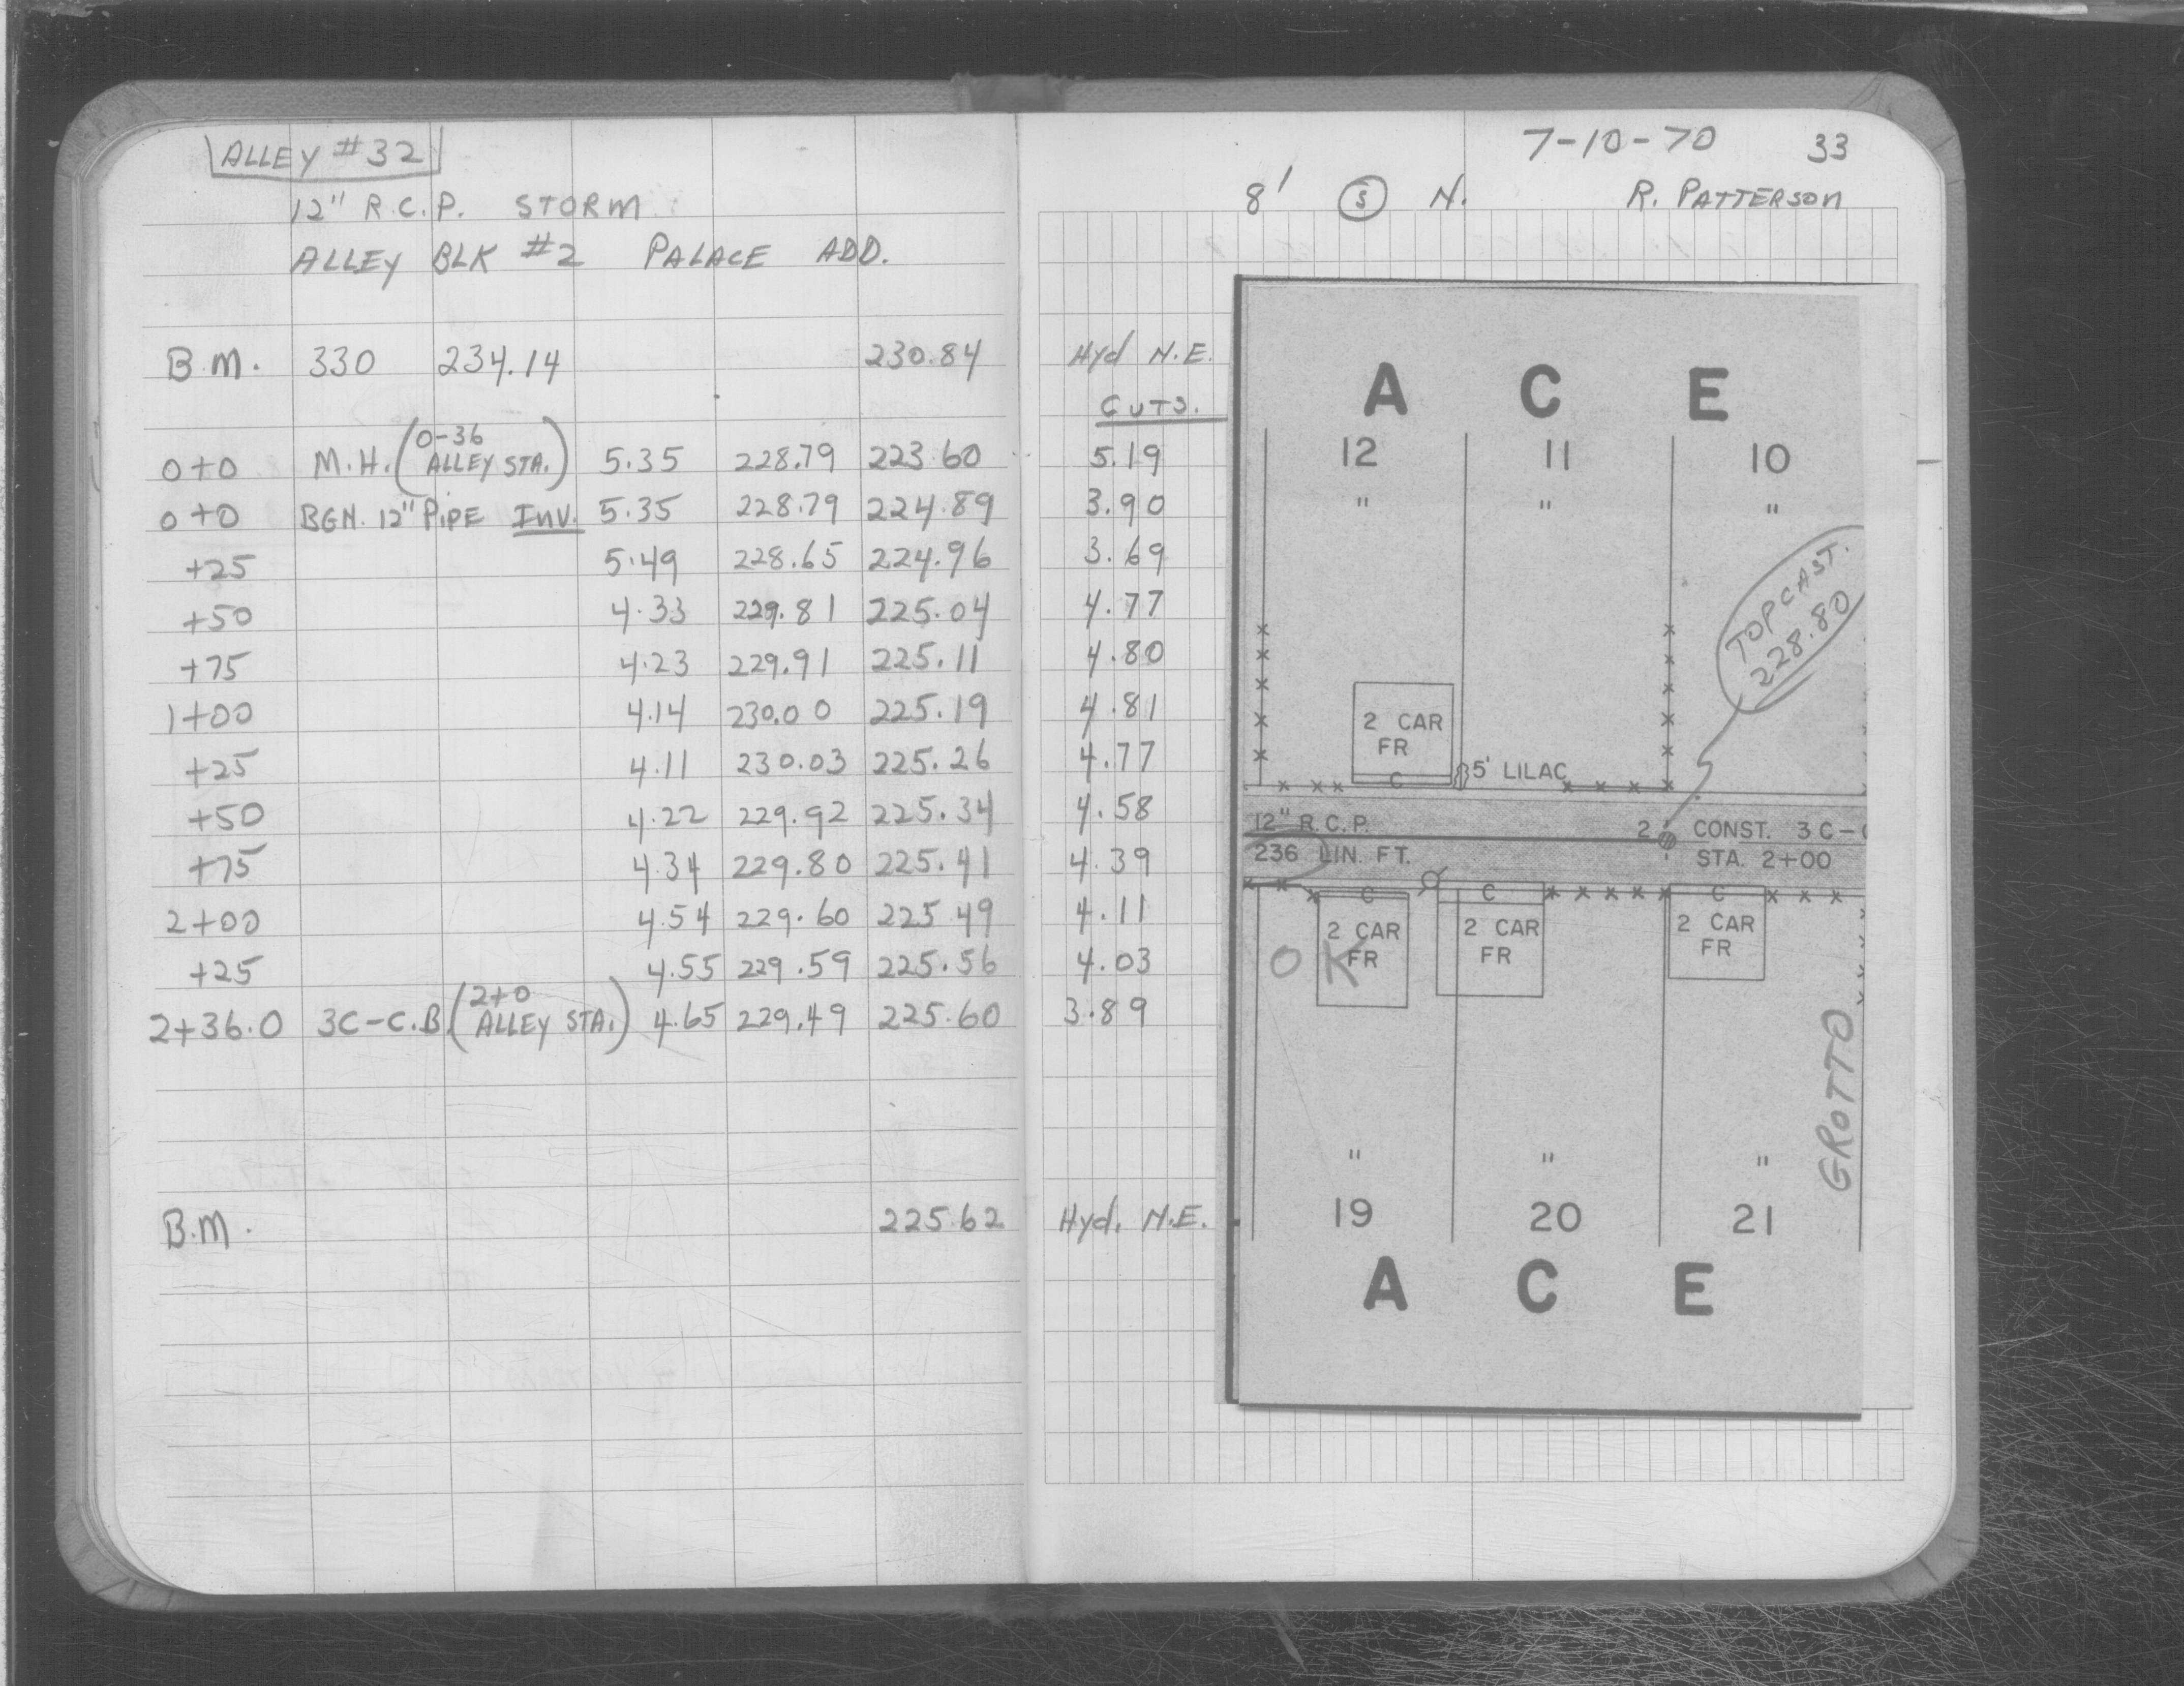 ALLEY #32
12" R.C.P. STORM
ALLEY BLK #2 PALACE ADD.
B.M. 330 234.14 230.84
0+0 M.H. (0-36 ALLEY STA.) 5.35 228.79 223.60
0+0 BGN. 12" PIPE INV. 5.35 228.79 224.89
+25 5.49 228.65 224.96
+50 4.33 229.81 225.04
+75 4.23 229.91 225.11
1+00 4.14 230.00 225.19
+25 4.11 230.03 225.26
+50 4.22 229.92 225.34
+75 4.34 229.80 225.41
2+00 4.54 229.60 225.49
+25 4.55 229.59 225.56
2+36.0 3C-C.B. (2+0 ALLEY STA.) 4.65 229.49 225.60
B.M. 225.62
7-10-70 33
8' S N. R. PATTERSON
Hyd N.E.
CUTS.
5.19
3.90
3.69
4.77
4.80
4.81
4.77
4.58
4.39
4.11
4.03
3.89
Hyd. N.E.
A C E
12 11 10
" " "
TOP CAST.
228.80
2 CAR
FR
C
5' LILAC
12" R.C.P.
236 LIN. FT.
2 CONST. 3C-
STA. 2+00
C C C
2 CAR 2 CAR 2 CAR
FR FR FR
OK
GROTTO
" " "
19 20 21
A C E